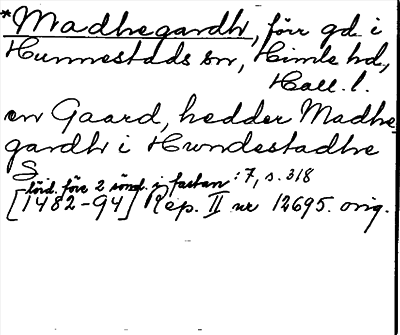 *Madhegardh, förr gd. i
Hunnestads sn, Himle hd,
Hall. l.
en Gaard, hedder Madhe
gardh i Hwndestadhe
S
lörd. före 2 sönd. i fastan : 7, s. 318
[1482-94] Rep. II nr 12695. orig.